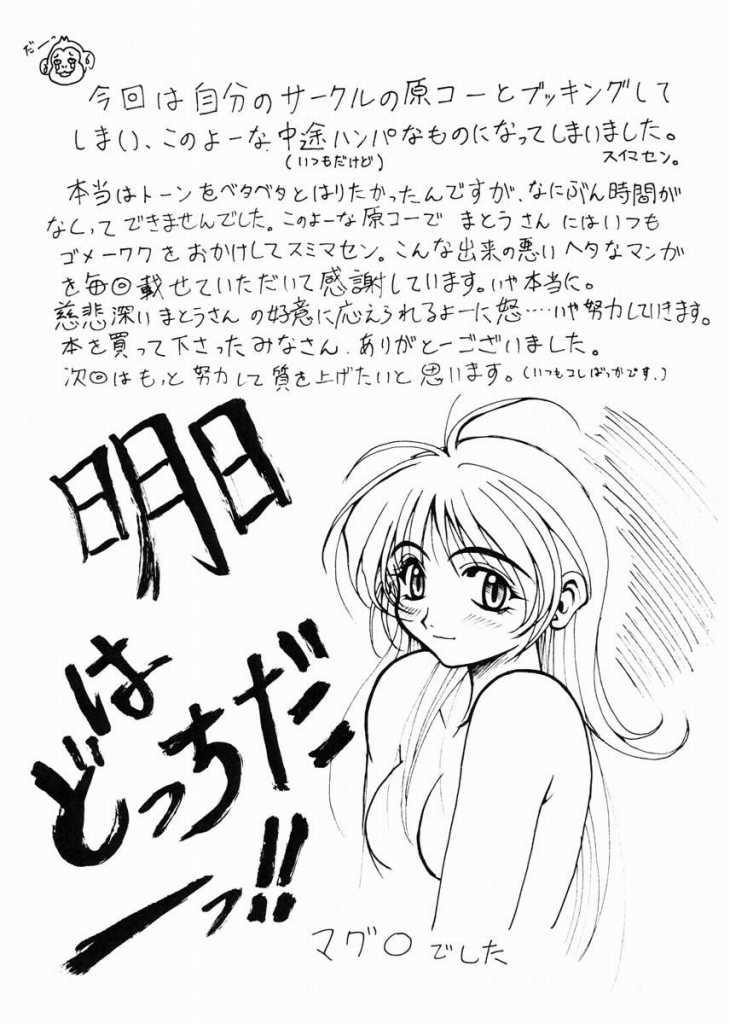 だー
今回は自分のサークルの原コーとブッキングして
しまい、このよーな中途ハンパなものになってしまいました。
(いつもだけど)
スイマセン。
本当はトーンをベタベタとはりたかったんですが、なにぶん時間が
なくってできませんでした。このよーな原コーで まとうさん にはいつも
ゴメーワクをおかけしてスミマセン。こんな出来の悪いヘタなマンガ
を毎回載せていただいて感謝しています。いや本当に。
慈悲深いまとうさん の好意に応えられるよーに怒……いや努力していきます。
本を買って下さったみなさん、ありがとーございました。
次回はもっと努力して質を上げたいと思います。(いつもコレばっかです、)
明日
は
どっちだ
ーッ!!
マグロでした